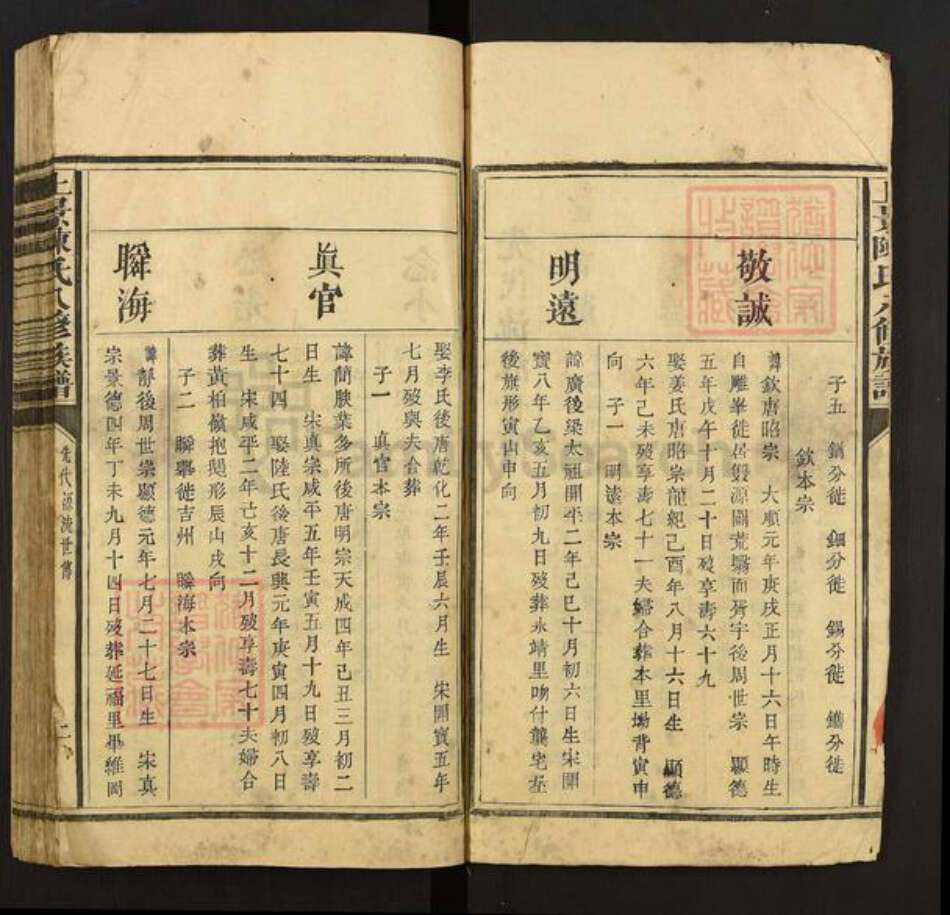 子五 鐫分徙 鈿分徙 錫分徙 鐫分徙
欽本宗
敬誠
諱欽唐昭宗 大順元年庚戌正月十六日午時生
自雕峯徙居雙源闢荒翳而胥宇後周世宗 顯德
五年戊午十月二十日歿享壽六十九
娶姜氏唐昭宗龍紀己酉年八月十六日生 顯德
六年己未歿享壽七十一夫婦合葬本里坳背寅申
向 子一 明遠本宗
明遠
諱廣後梁太祖開平二年己巳十月初六日生宋開
寶八年乙亥五月初九日歿葬永靖里吻什龔宅坵
後旗形寅山申向
娶李氏後唐乾化二年壬辰六月生 宋開寶五年
七月歿與夫合葬
子一 眞官本宗
眞官
諱簡腴業多所後唐明宗天成四年己丑三月初二
日生 宋真宗咸平五年壬寅五月十九日歿享壽
七十四 娶陸氏後唐長興元年庚寅四月初八日
生 宋咸平二年己亥十二月歿享壽七十夫婦合
葬黃柏嶺抱兒形辰山戌向
子二 瞬擧徙吉州 瞬海本宗
瞬海
諱靜後周世宗顯德元年七月二十七日生 宋真
宗景德四年丁未九月十四日歿葬延福里畢維岡
上景陳氏八修族譜
先代源流世傳